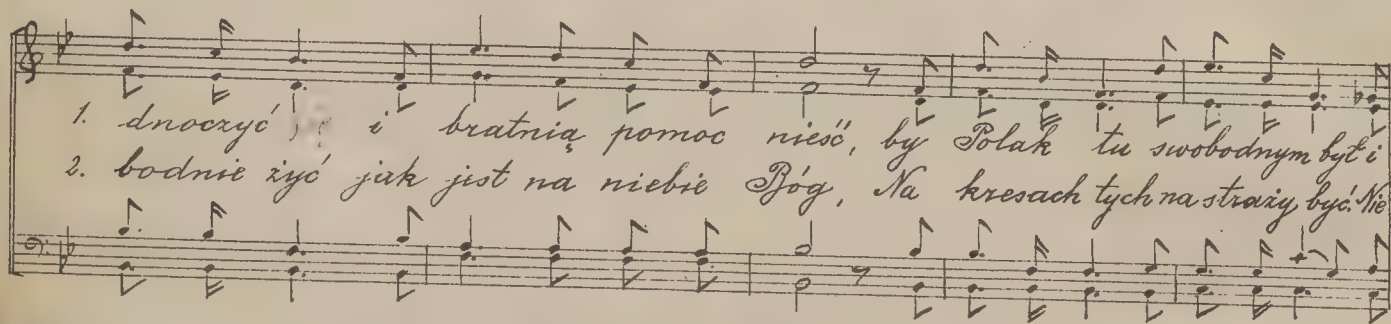 1. dnoczyć i bratnią pomoc nieść, by Polak tu swobodnym był i
2. bodnie żyć jak jist na niebie Bóg, Na kresach tych na straży być. Nie